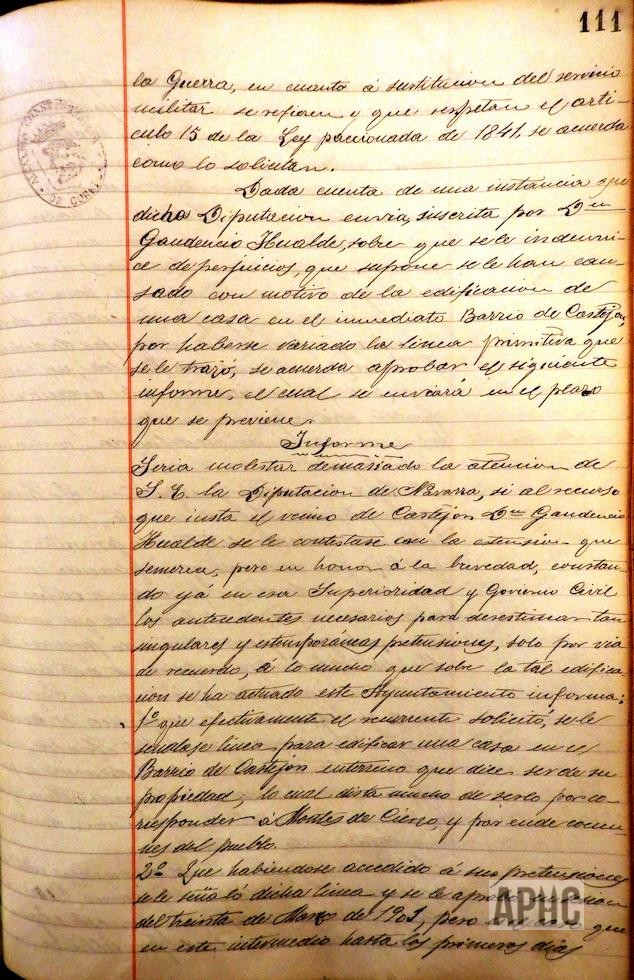 111
la Guerra, en cuanto á sustitucion del servicio
militar se refieren y que respetan el arti-
culo 15 de la Ley paccionada de 1841, se acuerda
como lo solicitan.
Dada cuenta de una instancia que
dicha Diputacion envia, suscrita por Dn
Gaudencio Hualde, sobre que se le indemni-
ce de perjuicios, que supone se le han cau-
sado con motivo de la edificacion de
una casa en el inmediato Barrio de Castejon,
por haberse variado la linea primitiva que
se le trazó, se acuerda aprobar el siguiente
informe, el cual se enviará en el plazo
que se previene.
Informe
Seria molestar demasiado la atencion de
S. E. la Diputacion de Navarra, si al recurso
que insta el vecino de Castejon Dn Gaudencio
Hualde se le contestase con la extension que
se merece, pero en honor á la brevedad, constan-
do yá en esa Superioridad y Govierno Civil
los antecedentes necesarios para desestimar tan
singulares y estemporáneas pretensiones, solo por via
de recuerdo, á lo mucho que sobre la tal edifica-
cion se ha actuado este Ayuntamiento informa:
1º que efectivamente el recurrente solicitó, se le
señalase linea para edificar una casa en el
Barrio de Castejón en terreno que dice ser de su
propiedad, lo cual dista mucho de serlo por co-
rresponder á Montes de Cierzo, y por ende comu-
nes del pueblo.
2º Que habiendose accedido á sus pretensiones
se le señaló dicha linea y se le aprobó en sesion
del treinta de Marzo de 1903, pero que
en este intermedio hasta los primeros dias
APHC